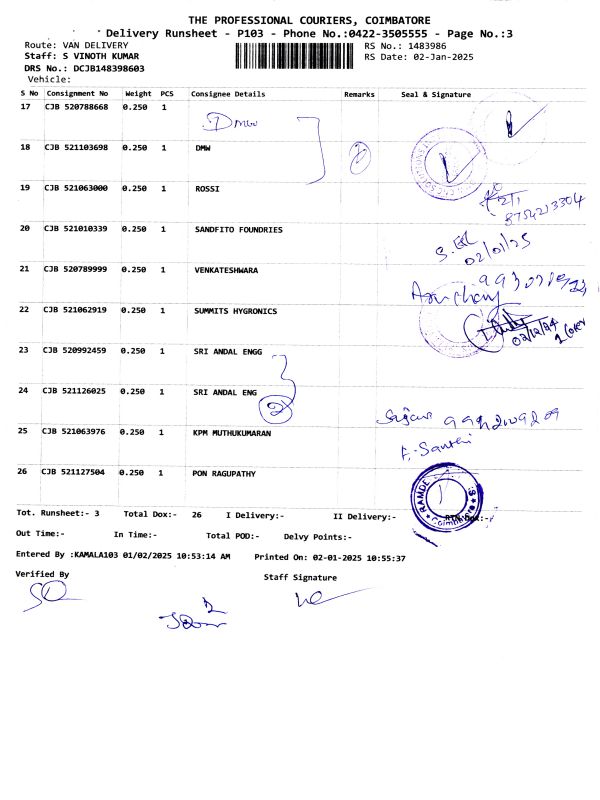 THE PROFESSIONAL COURIERS, COIMBATORE
Delivery Runsheet - P103 - Phone No.:0422-3505555 - Page No.:3
Route: VAN DELIVERY RS No.: 1483986
Staff: S VINOTH KUMAR RS Date: 02-Jan-2025
DRS No.: DCJB148398603
Vehicle:
S No Consignment No Weight PCS Consignee Details Remarks Seal & Signature
17 CJB 520788668 0.250 1
DMW
18 CJB 521103698 0.250 1 DMW
2
19 CJB 521063000 0.250 1 ROSSI
8754213304
20 CJB 521010339 0.250 1 SANDFITO FOUNDRIES
02/01/25
21 CJB 520789999 0.250 1 VENKATESHWARA
22 CJB 521062919 0.250 1 SUMMITS HYGRONICS
02/12/24
23 CJB 520992459 0.250 1 SRI ANDAL ENGG
24 CJB 521126025 0.250 1 SRI ANDAL ENG
2
25 CJB 521063976 0.250 1 KPM MUTHUKUMARAN
26 CJB 521127504 0.250 1 PON RAGUPATHY
Tot. Runsheet:- 3 Total Dox:- 26 I Delivery:- II Delivery:-
Out Time:- In Time:- Total POD:- Delvy Points:-
Entered By :KAMALA103 01/02/2025 10:53:14 AM Printed On: 02-01-2025 10:55:37
Verified By Staff Signature